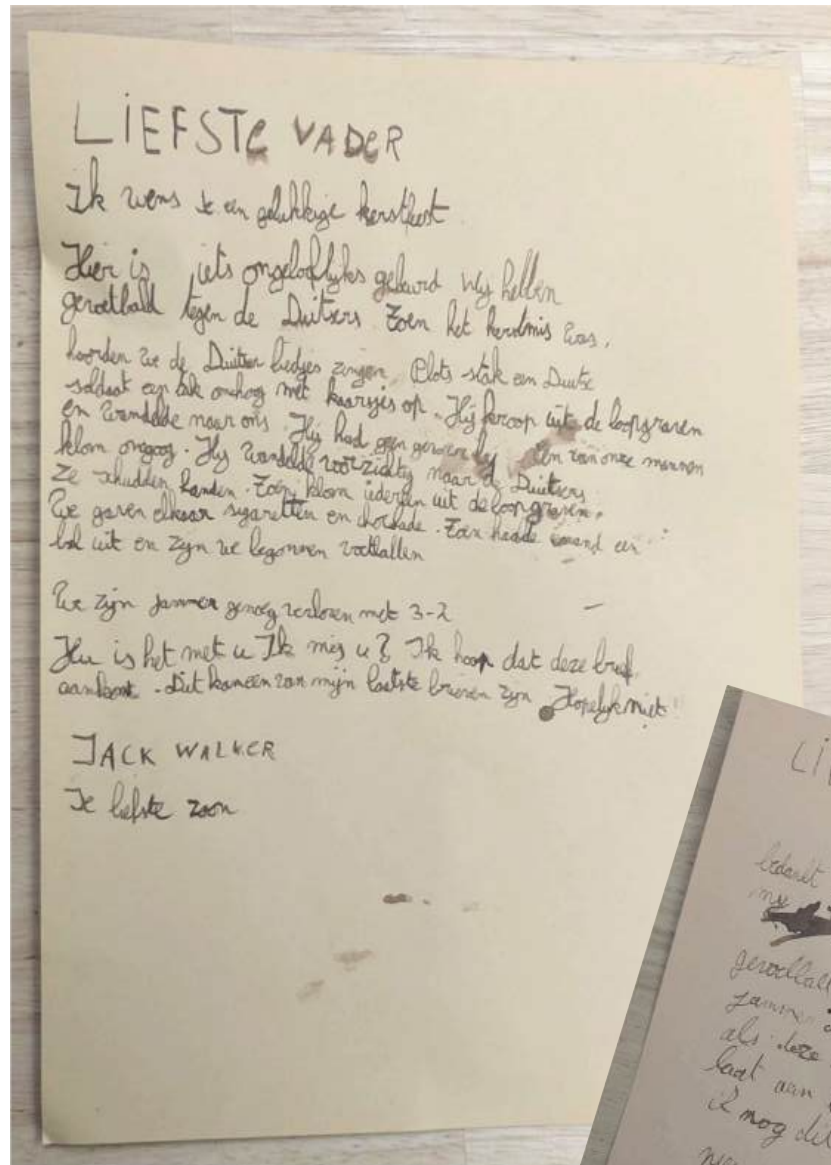 LIEFSTE VADER
Ik wens je een gelukkige kerstfeest.
Hier is iets ongelooflijks gebeurd wij hebben
gevoetbald tegen de Duitsers Toen het kerstmis was,
hoorden we de Duitser liedjes zingen. Plots stak een Duitse
soldaat een tak omhoog met kaarsjes op. Hij kroop uit de loopgraven
en wandelde naar ons. Hij had geen geweren bij Een van onze mannen
klom omgoog. Hij wandelde voorzichtig naar de Duitsers
Ze schudden handen. Toen klom iedereen uit de loopgraven.
We gaven elkaar sigaretten en chocolade. Toen haalde iemand een
bal uit en zijn we begonnen voetballen
We zijn jammer genoeg verloren met 3-2
Hu is het met u Ik mis u? Ik hoop dat deze brief
aankomt. Dit kan een van mijn laatste brieven zijn Hopelijk niet!
JACK WALKER
Je liefste zoon
LI
bedankt
my
gevoetball
jammer
als deze
laat aan
ik nog dit